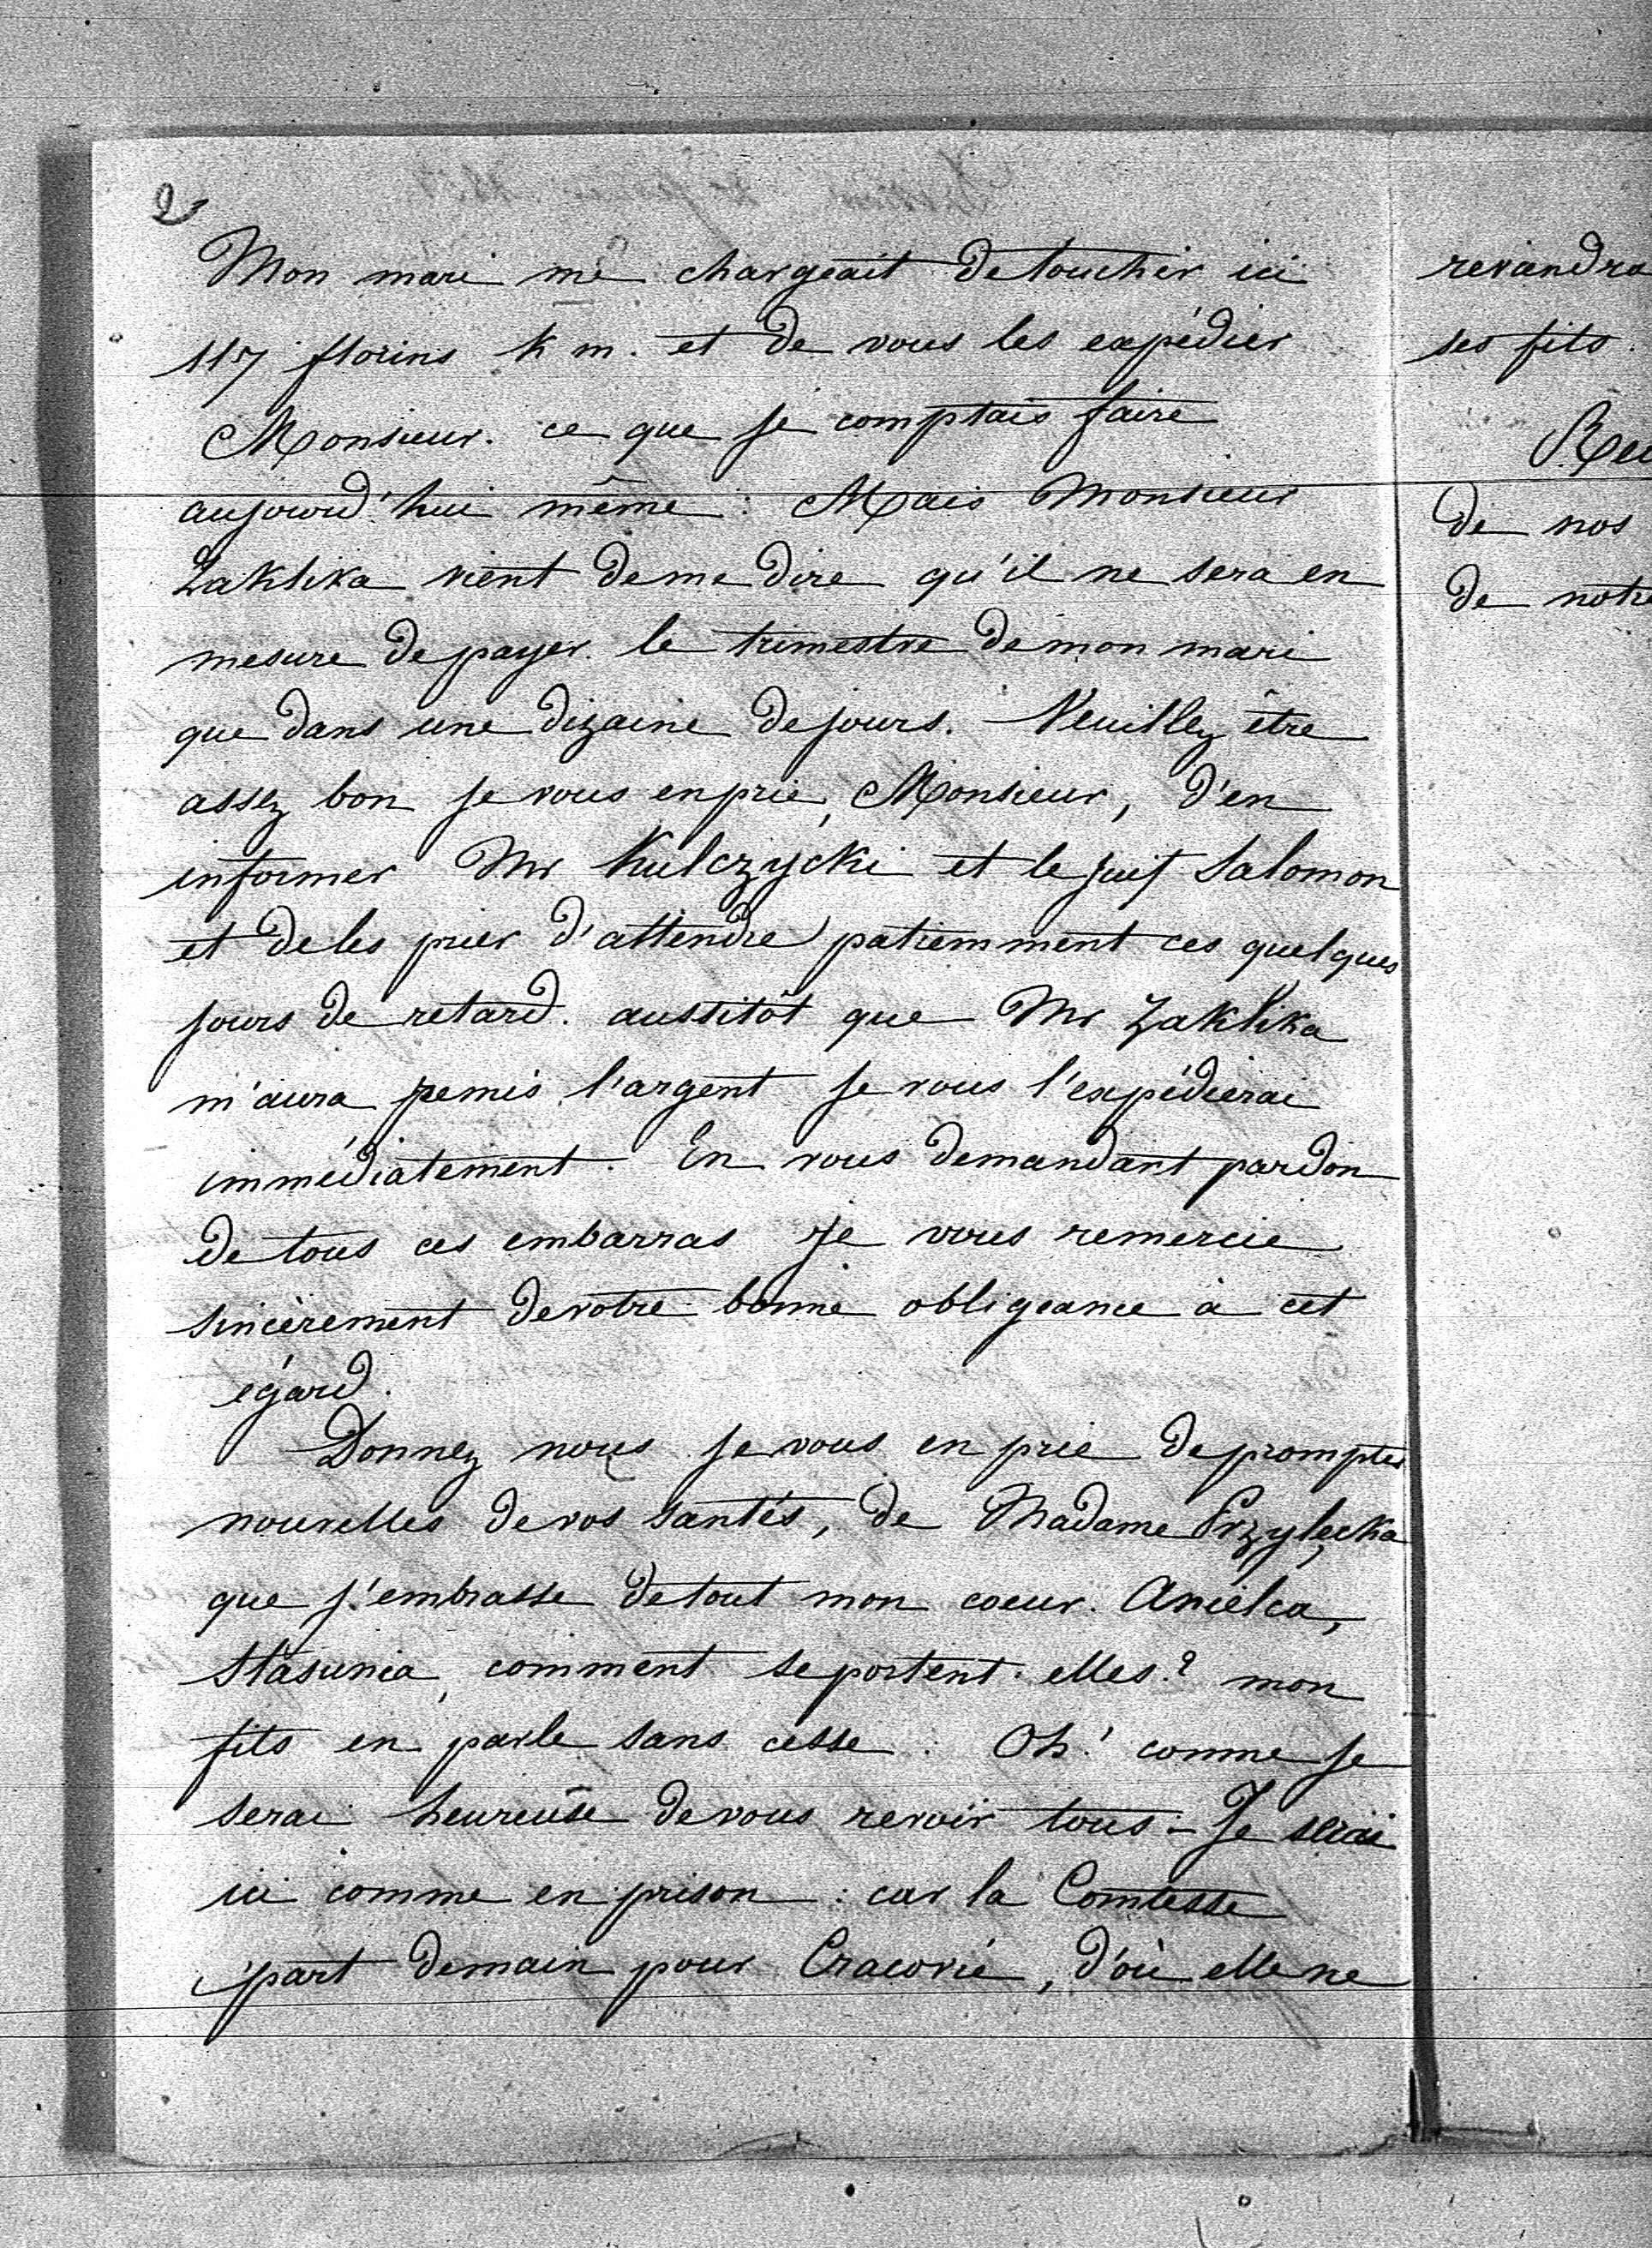 2
Mon mari me chargeait de toucher ici
117 florins k m. et de vous les expédier
Monsieur. ce que je comptais faire
aujourd'hui même : Mais Monsieur
Zaklika vient de me dire qu'il ne sera en
mesure de payer le trimestre de mon mari
que dans une dizaine de jours. Veuillez être
assez bon je vous en prie, Monsieur, d'en
informer Mr Kulczycki et le juif Salomon
et de les prier d'attendre patiemment ces quelques
jours de retard. aussitôt que Mr Zaklika
m'aura remis l'argent je vous l'expédierai
immédiatement. En vous demandant pardon
de tous ces embarras je vous remercie
sincèrement de votre bonne obligeance à cet
égard.
Donnez nous je vous en prie de promptes
nouvelles de vos santés, de Madame Przyłęcka
que j'embrasse de tout mon coeur. Anielca,
Stasunia, comment se portent elles? mon
fils en parle sans cesse : Oh! comme je
serai heureuse de vous revoir tous - Je serai
ici comme en prison : car la Comtesse
part demain pour Cracovie, d'où elle ne
reviendra
ses fils.
de nos
de notre